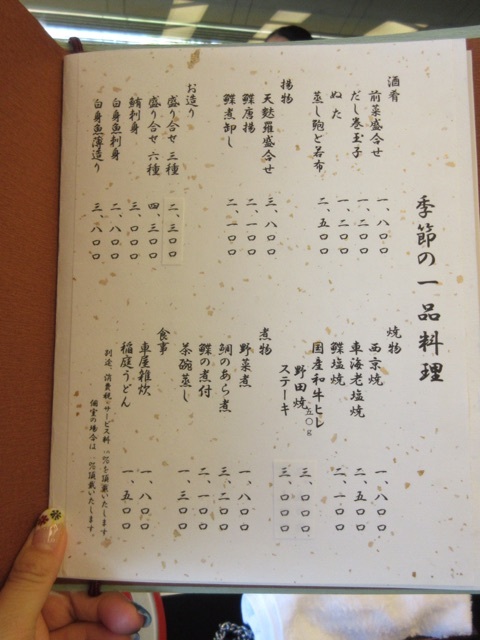 季節の一品料理
酒肴
前菜盛合せ 一、八〇〇
だし巻玉子 一、二〇〇
ぬた 一、二〇〇
蒸し鮑と若布 二、五〇〇
揚物
天麩羅盛合せ 三、八〇〇
鰈唐揚 二、一〇〇
鰈煮卸し 二、一〇〇
お造り
盛り合せ 三種 二、三〇〇
盛り合せ 六種 四、三〇〇
鮪刺身 三、〇〇〇
白身魚刺身 二、八〇〇
白身魚薄造り 三、八〇〇
焼物
西京焼 一、八〇〇
車海老塩焼 二、五〇〇
鰈塩焼 二、一〇〇
国産和牛ヒレ五〇g
野田焼 三、〇〇〇
ステーキ 三、〇〇〇
煮物
野菜煮 一、八〇〇
鯛のあら煮 三、二〇〇
鰈の煮付 二、一〇〇
茶碗蒸し 一、三〇〇
食事
車屋雑炊 一、八〇〇
稲庭うどん 一、五〇〇
別途、消費税・サービス料 %を頂戴いたします
個室の場合は %頂戴いたします。